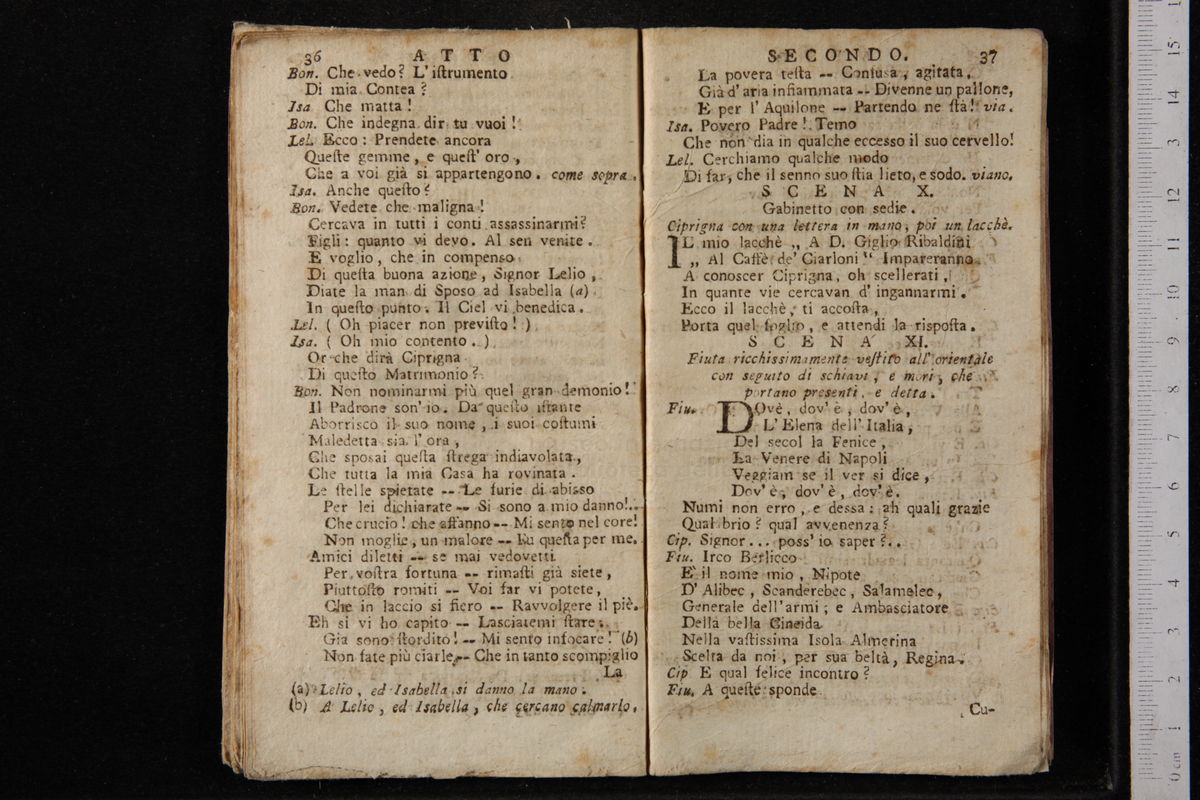 36 ATTO
Bon. Che vedo? L'iſtrumento
Di mia Contea?
Isa Che matta!
Bon. Che indegna dir tu vuoi!
Lel. Ecco: Prendete ancora
Queſte gemme, e queſt' oro,
Che a voi già si appartengono. come sopra.
Isa. Anche queſto?
Bon. Vedete che maligna!
Cercava in tutti i conti assassinarmi?
Figli: quanto vi devo. Al sen venite.
E voglio, che in compenso
Di queſta buona azione, Signor Lelio,
Diate la man di Sposo ad Isabella (a)
In queſto punto. Il Ciel vi benedica.
Lel. (Oh piacer non previſto!)
Isa. (Oh mio contento.)
Or che dirà Ciprigna
Di queſto Matrimonio?
Bon. Non nominarmi più quel gran demonio!
Il Padrone son' io. Da queſto iſtante
Aborrisco il suo nome, i suoi coſtumi
Maledetta sia l'ora,
Che sposai queſta ſtrega indiavolata,
Che tutta la mia Casa ha rovinata.
Le ſtelle spietate -- Le furie di abisso
Per lei dichiarate -- Si sono a mio danno!..
Che crucio! che affanno -- Mi sento nel core!
Non moglie, un malore -- Fu queſta per me.
Amici diletti -- se mai vedovetti
Per voſtra fortuna -- rimaſti già siete,
Piuttoſto romiti -- Voi far vi potete,
Che in laccio si fiero -- Ravvolgere il piè.
Eh si vi ho capito -- Lasciatemi ſtare:
Gia sono ſtordito! -- Mi sento infocare! (b)
Non fate più ciarle, -- Che in tanto scompiglio
La
(a) Lelio, ed Isabella si danno la mano.
(b) A Lelio, ed Isabella, che cercano calmarlo.
SECONDO. 37
La povera teſta -- Confusa, agitata,
Già d' aria infiammata -- Divenne un pallone,
E per l' Aquilone -- Partendo ne ſtà! via.
Isa. Povero Padre! Temo
Che non dia in qualche eccesso il suo cervello!
Lel. Cerchiamo qualche modo
Di far, che il senno suo ſtia lieto, e sodo. viano.
SCENA X.
Gabinetto con sedie.
Ciprigna con una lettera in mano, poi un lacchè.
IL mio lacchè „ A D. Giglio Ribaldini
„ Al Caffè de' Ciarloni “ Impareranno
A conoscer Ciprigna, oh scellerati,
In quante vie cercavan d' ingannarmi.
Ecco il lacchè, ti accoſta,
Porta quel foglio, e attendi la rispoſta.
SCENA XI.
Fiuta ricchissimamente veſtito all' orientale
con seguito di schiavi, e mori, che
portano presenti, e detta.
Fiu. DOvè, dov' è, dov' è,
L' Elena dell' Italia,
Del secol la Fenice,
La Venere di Napoli
Veggiam se il ver si dice,
Dov' è, dov' è, dov' è.
Numi non erro, e dessa: ah quali grazie
Qual brio? qual avvenenza?
Cip. Signor... poss' io saper?..
Fiu. Irco Berlicco
E' il nome mio, Nipote
D' Alibec, Scanderebec, Salamelec,
Generale dell' armi; e Ambasciatore
Della bella Gineida
Nella vaſtissima Isola Almerina
Scelta da noi, per sua beltà, Regina.
Cip E qual felice incontro?
Fiu. A queſte sponde
Cu-
0 cm 1 2 3 4 5 6 7 8 9 10 11 12 13 14 15